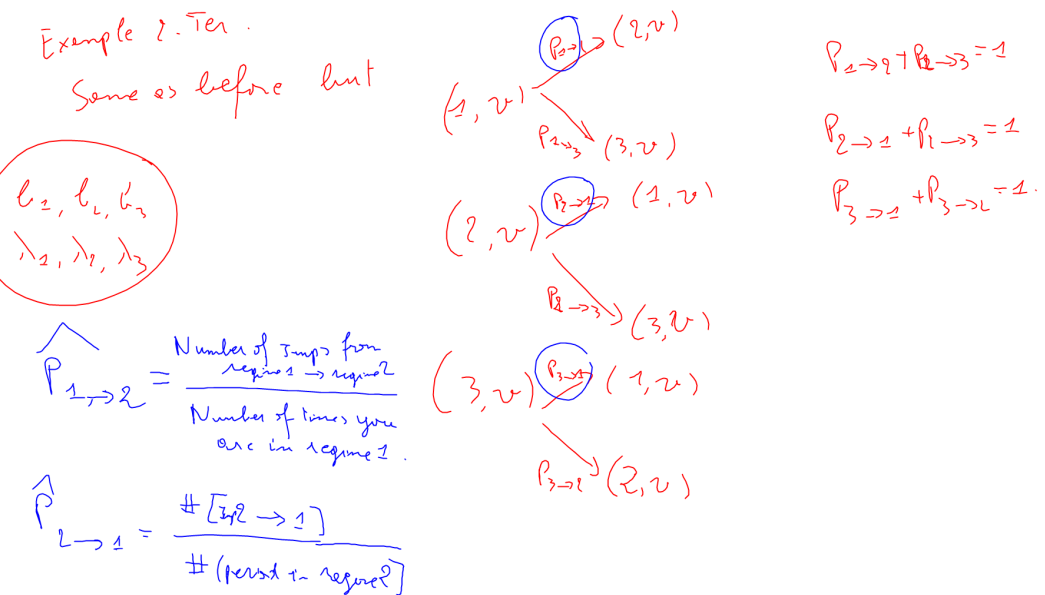 Example 2. Ter.
Same as before but
b₁, b₂, b₃
λ₁, λ₂, λ₃
P̂₁→₂ = Number of Jumps from
regime 1 → regime 2
Number of times you
are in regime 1.
P̂₂→₁ = # [Jump 2 → 1]
# (period in regime 2]
(1, v)
P₁→₂ (2, v)
P₁→₃ (3, v)
(2, v)
P₂→₁ (1, v)
P₂→₃ (3, v)
(3, v)
P₃→₁ (1, v)
P₃→₂ (2, v)
P₁→₂ + P₁→₃ = 1
P₂→₁ + P₂→₃ = 1
P₃→₁ + P₃→₂ = 1.